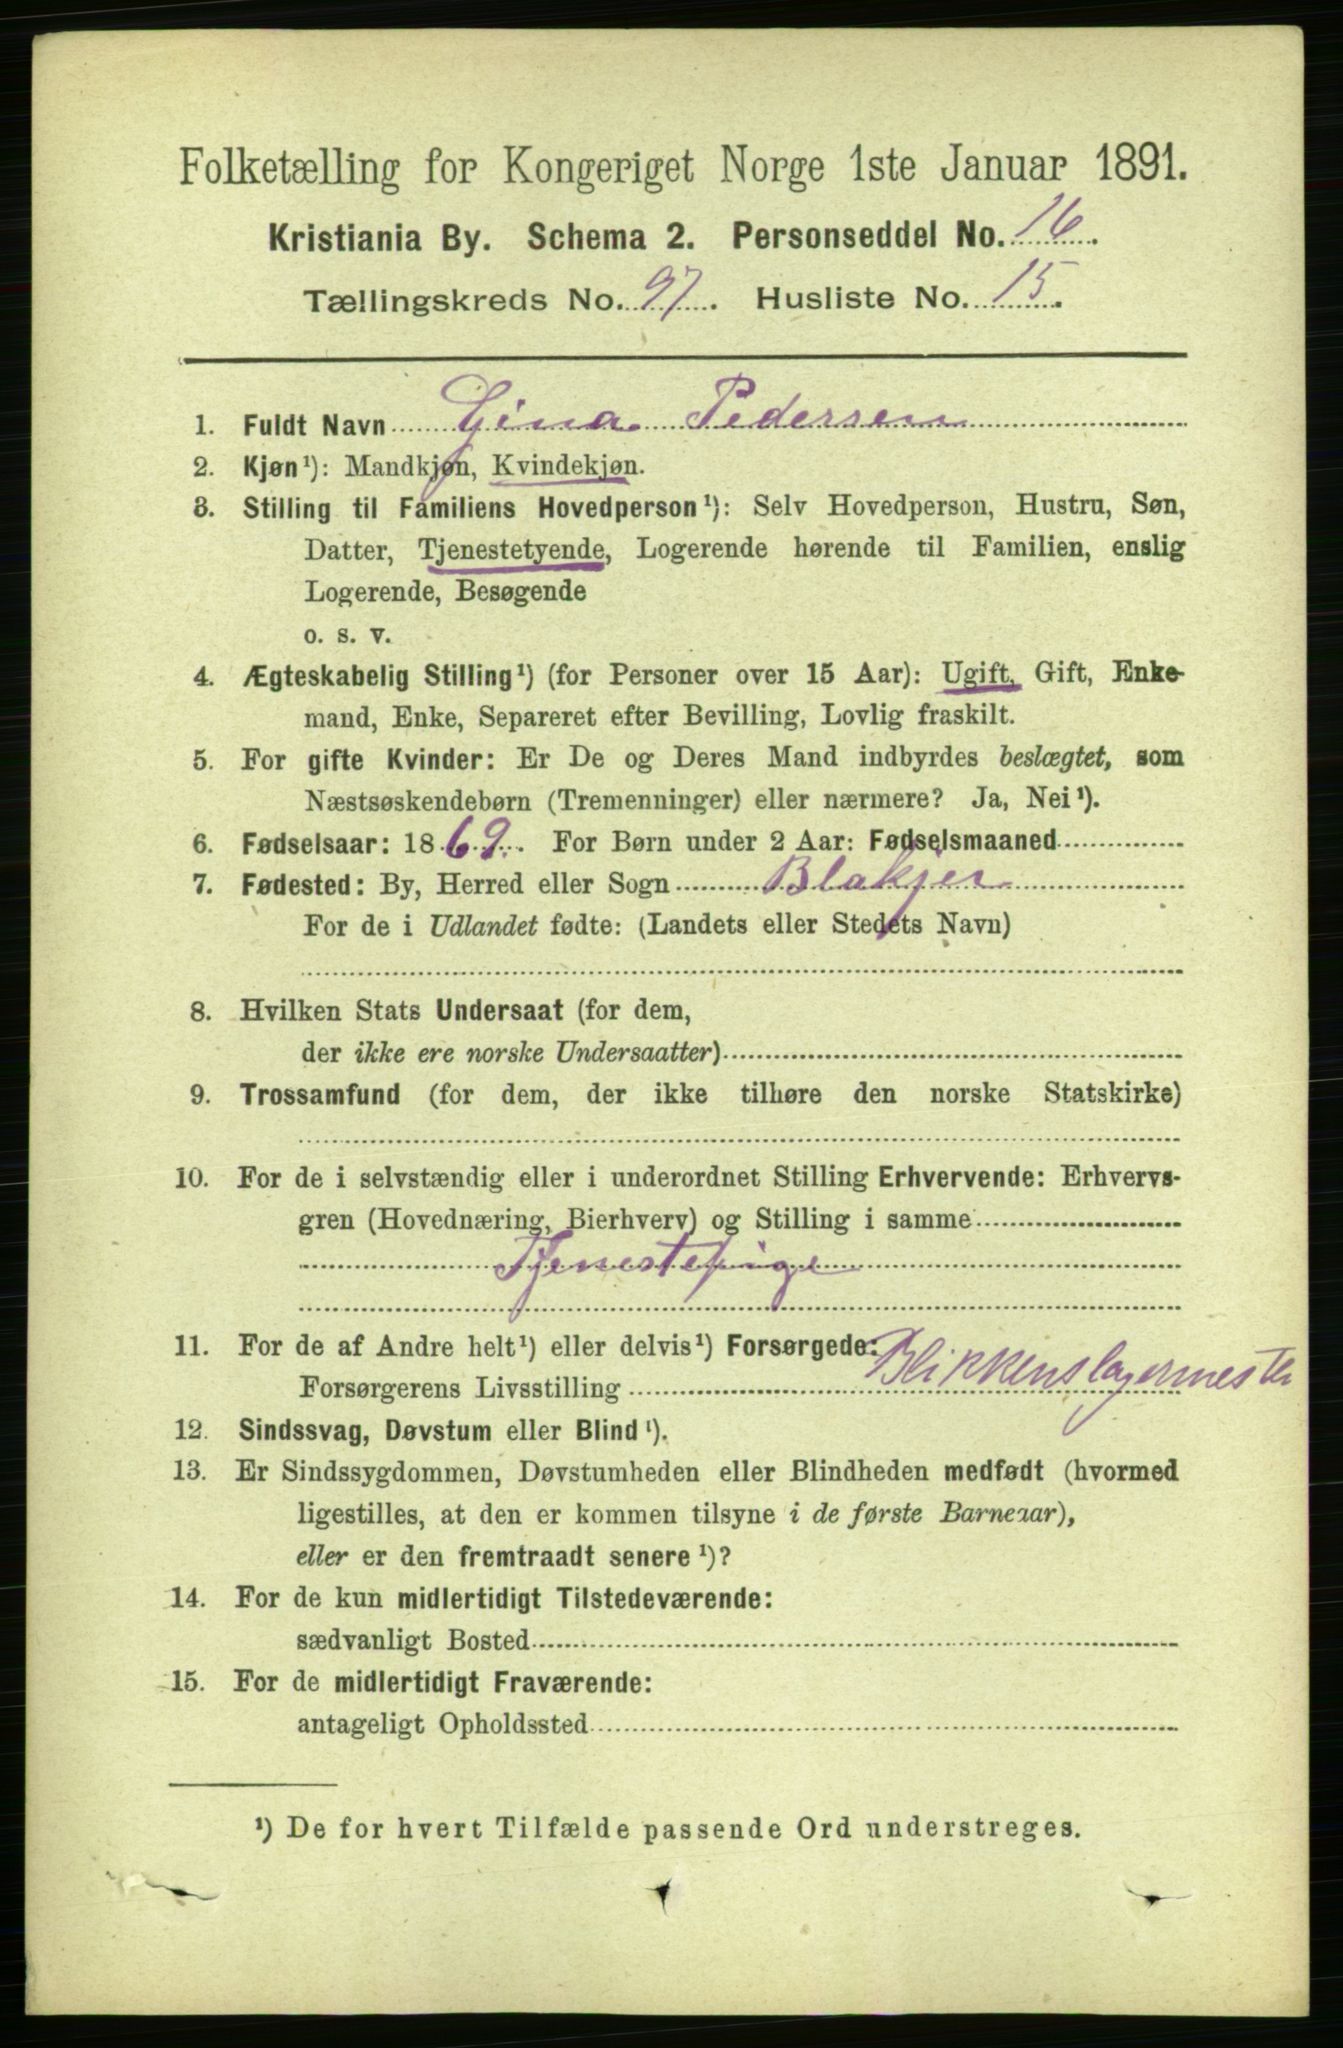 Folketælling for Kongeriget Norge 1ste Januar 1891.
Kristiania By. Schema 2. Personseddel No. 16.
Tællingskreds No. 97. Husliste No. 15.
1. Fuldt Navn Gina Pedersen
2. Kjøn¹): Mandkjøn, Kvindekjøn.
3. Stilling til Familiens Hovedperson¹): Selv Hovedperson, Hustru, Søn,
Datter, Tjenestetyende, Logerende hørende til Familien, enslig
Logerende, Besøgende
o. s. v.
4. Ægteskabelig Stilling¹) (for Personer over 15 Aar): Ugift, Gift, Enke-
mand, Enke, Separeret efter Bevilling, Lovlig fraskilt.
5. For gifte Kvinder: Er De og Deres Mand indbyrdes beslægtet, som
Næstsøskendebørn (Tremenninger) eller nærmere? Ja, Nei¹).
6. Fødselsaar: 1869. For Børn under 2 Aar: Fødselsmaaned
7. Fødested: By, Herred eller Sogn Blakjer
For de i Udlandet fødte: (Landets eller Stedets Navn)
8. Hvilken Stats Undersaat (for dem,
der ikke ere norske Undersaatter)
9. Trossamfund (for dem, der ikke tilhøre den norske Statskirke)
10. For de i selvstændig eller i underordnet Stilling Erhvervende: Erhvervs-
gren (Hovednæring, Bierhverv) og Stilling i samme
Tjenestepige
11. For de af Andre helt¹) eller delvis¹) Forsørgede:
Forsørgerens Livsstilling Blikkenslagermester
12. Sindssvag, Døvstum eller Blind¹).
13. Er Sindssygdommen, Døvstumheden eller Blindheden medfødt (hvormed
ligestilles, at den er kommen tilsyne i de første Barneaar),
eller er den fremtraadt senere¹)?
14. For de kun midlertidigt Tilstedeværende:
sædvanligt Bosted
15. For de midlertidigt Fraværende:
antageligt Opholdssted
¹) De for hvert Tilfælde passende Ord understreges.